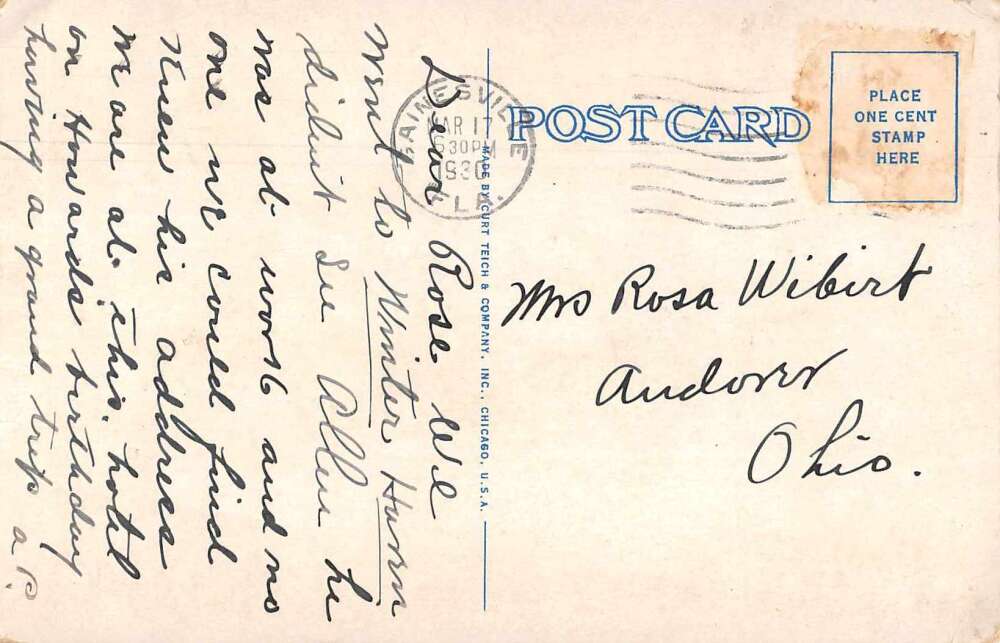 Dear Rose We
Went to Winter Haven
didnit See Allen he
was at work and no
one we could find
Knew his address
We are at this hotel
on Howards birthday
having a grand trip
GAINESVILLE
MAR 17
630PM
1930
FLA.
POST CARD
PLACE
ONE CENT
STAMP
HERE
MADE BY CURT TEICH & COMPANY, INC., CHICAGO, U.S.A.
Mrs Rosa Wibirt
Andover
Ohio.